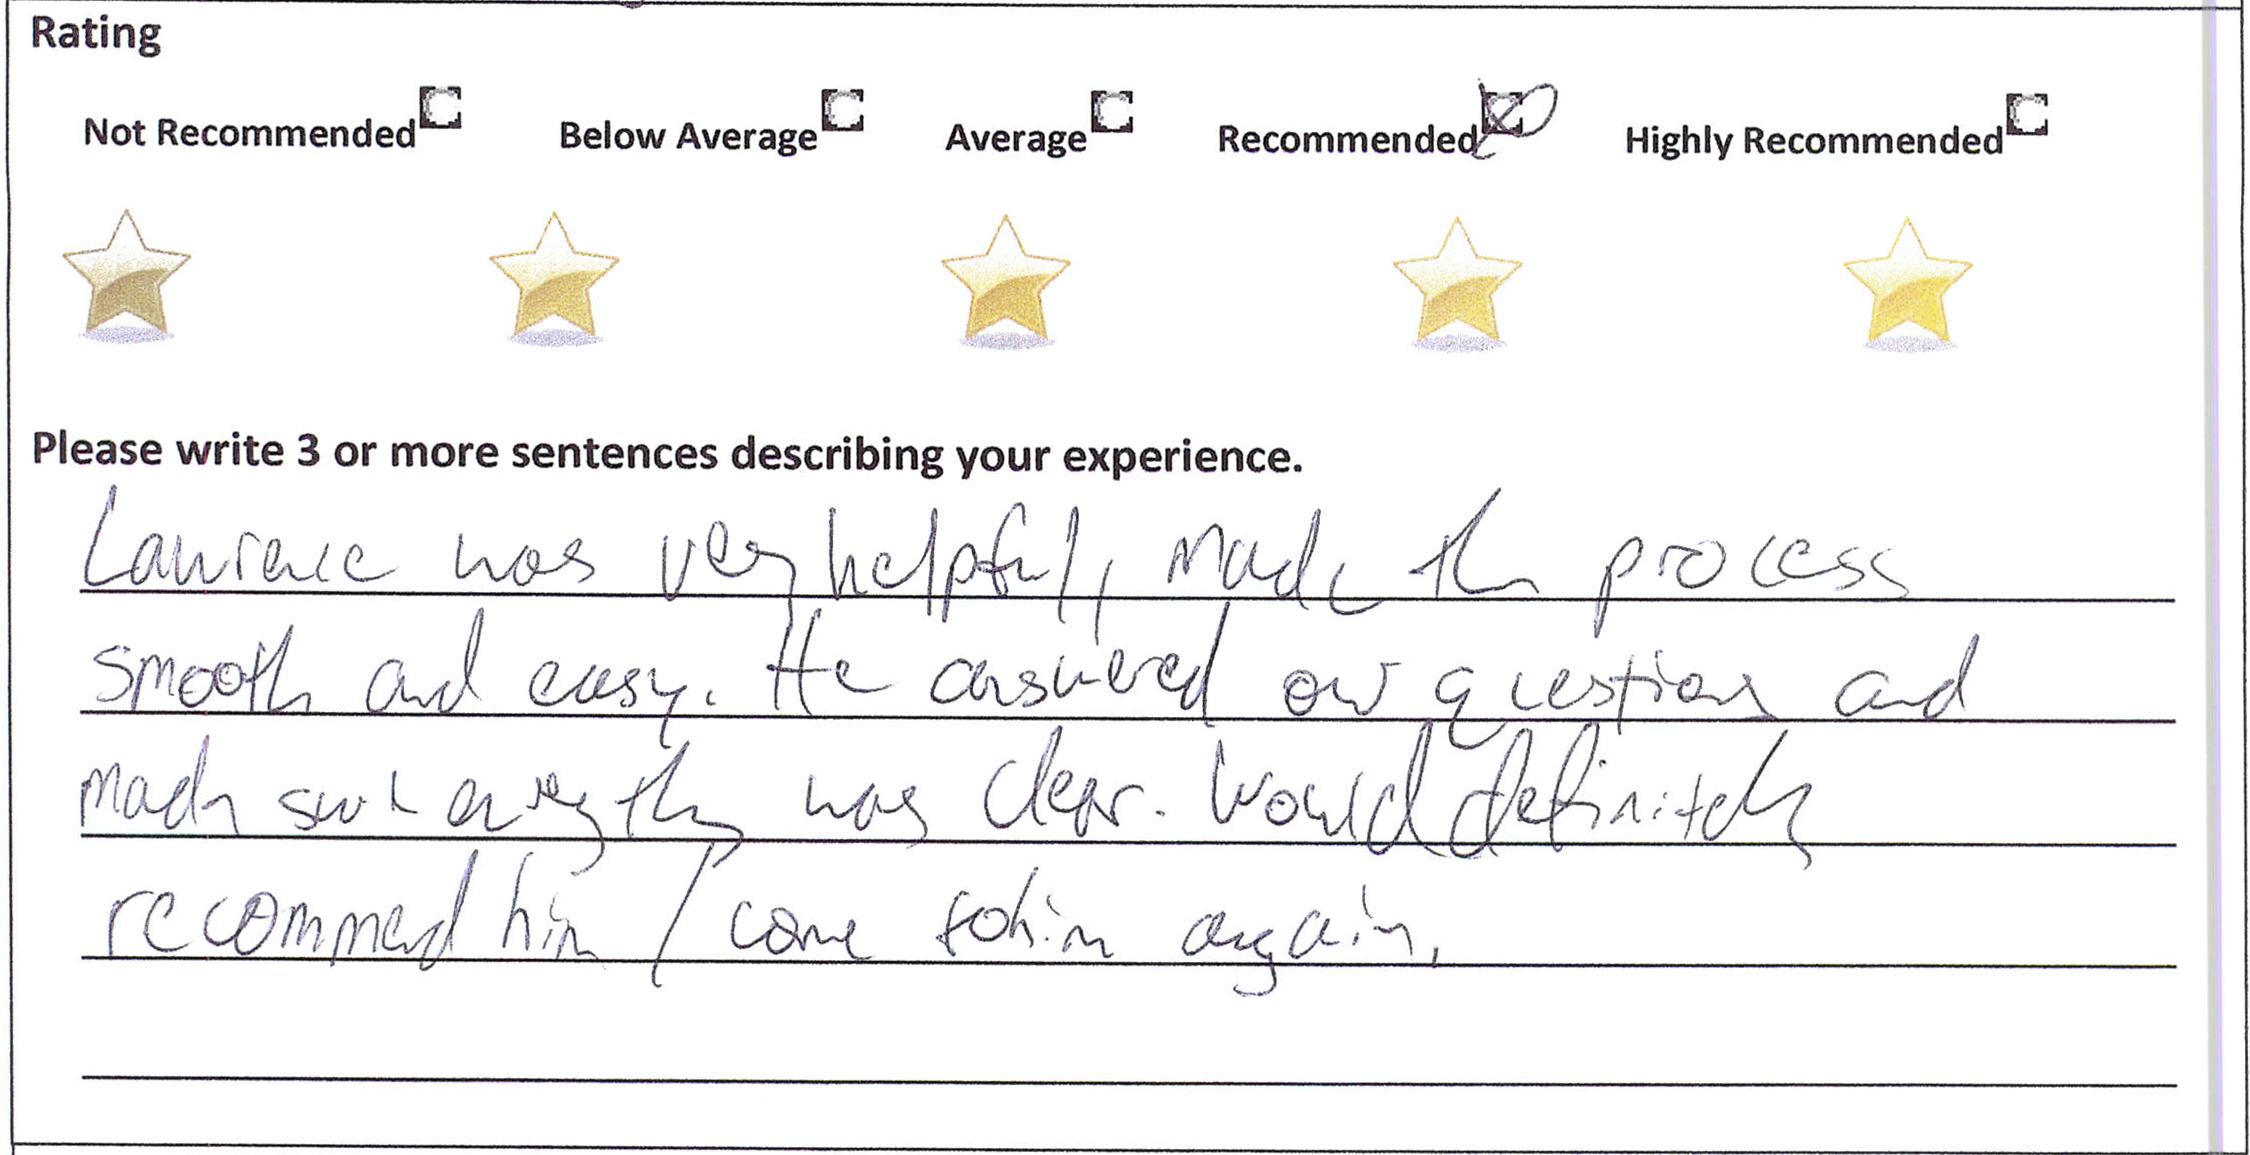 Rating
Not Recommended Below Average Average Recommended Highly Recommended
Please write 3 or more sentences describing your experience.
Lawrence was very helpful, made the process
smooth and easy. He answered our questions and
made sure everything was clear. Would definitely
recommend him / come to him again.